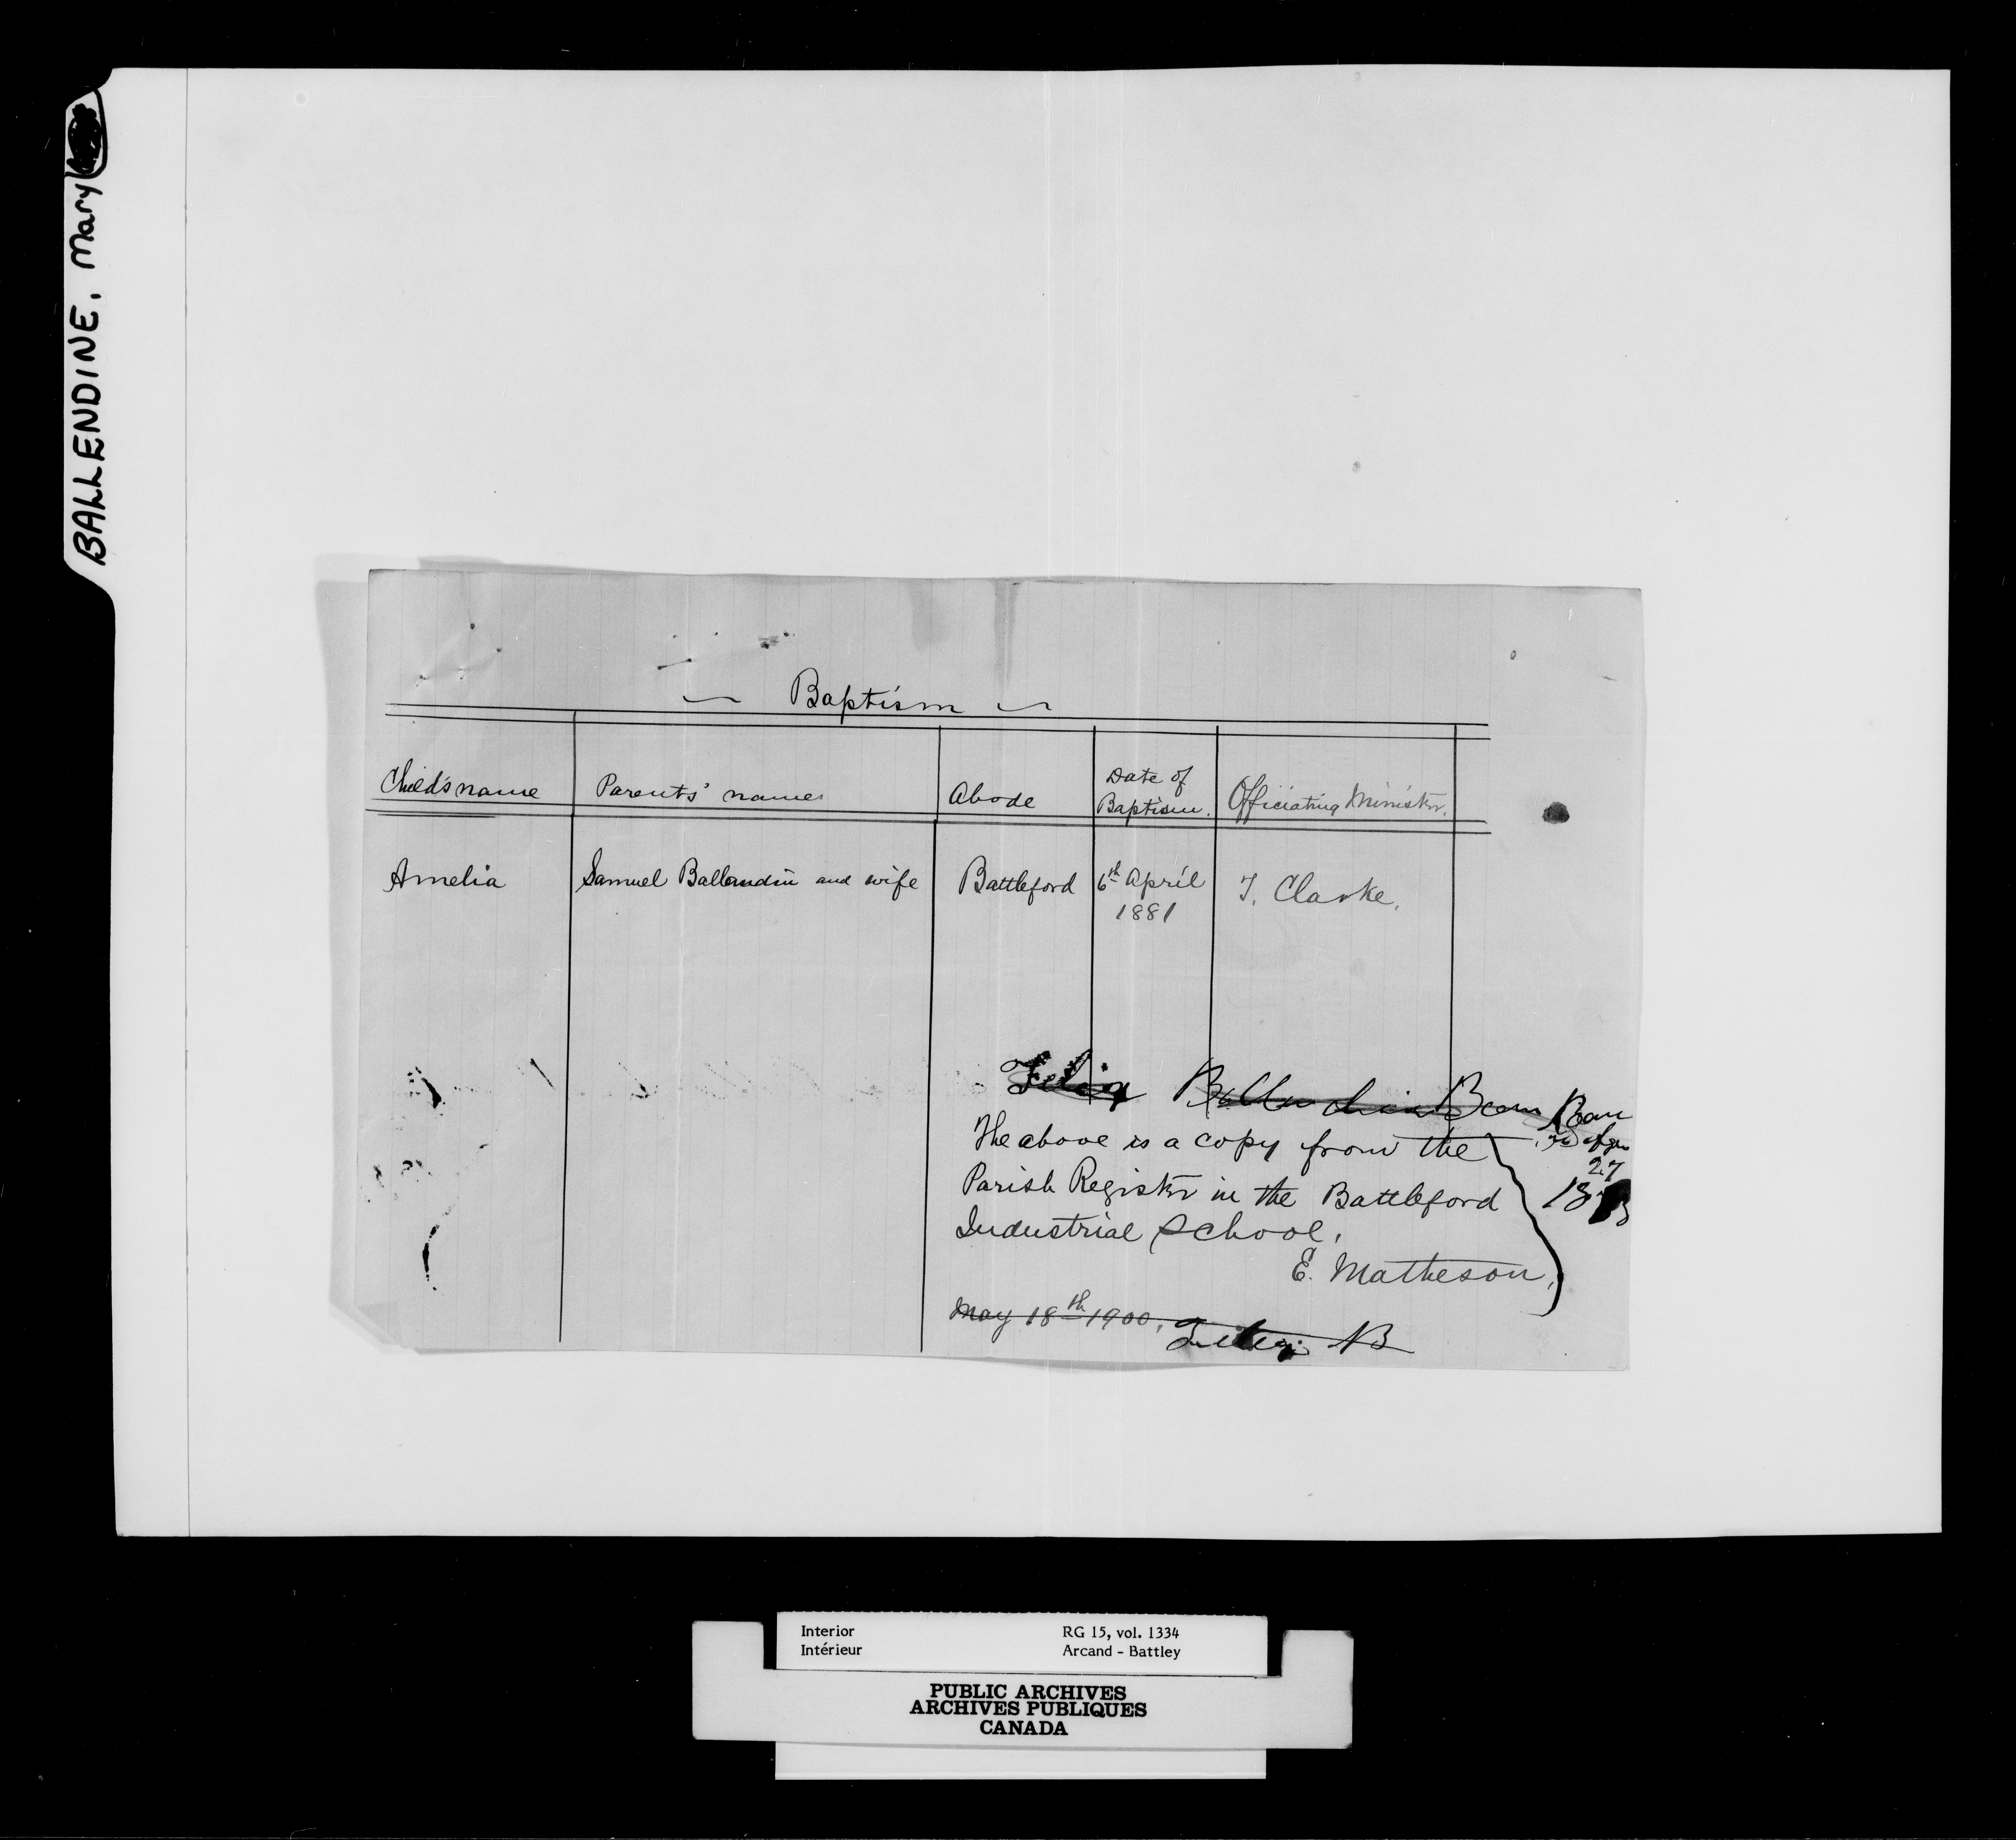 BALLENDINE, Mary
Baptism
Child's name
Parents' names
Abode
Date of
Baptism.
Officiating Minister.
Amelia
Samuel Ballendin and wife
Battleford
6th April
1881
T. Clarke.
Ballendine
The above is a copy from the
Parish Register in the Battleford
Industrial School.
E. Matheson,
May 18th 1900.
27
Interior
Intérieur
RG 15, vol. 1334
Arcand - Battley
PUBLIC ARCHIVES
ARCHIVES PUBLIQUES
CANADA